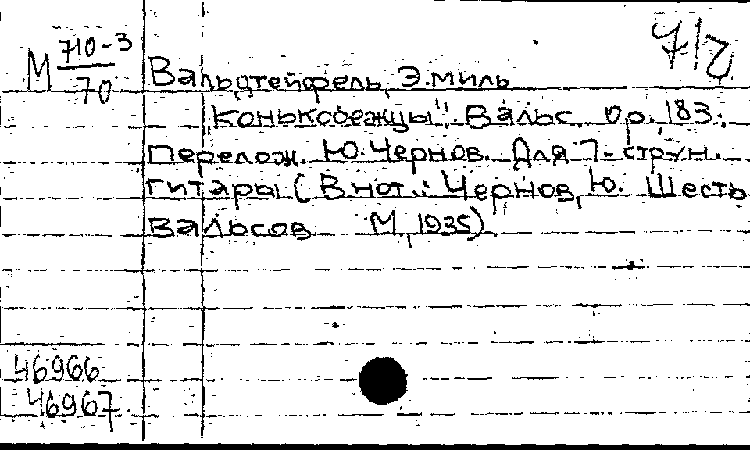 7/2
М 710-3
70
Вальдтейфель, Эмиль
"Конькобежцы". Вальс. Op. 183.
Перелож. Ю. Чернов. Для 7-струн.
гитары (В нот.: Чернов, Ю. Шесть
вальсов М., 1935)
46966
46967